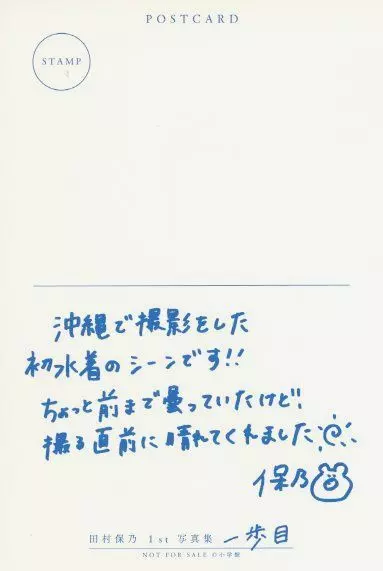 POSTCARD
STAMP
沖縄で撮影をした
初水着のシーンです!!
ちょっと前まで曇っていたけど!
撮る直前に晴れてくれました
保乃
田村保乃 1st 写真集 一歩目
NOT FOR SALE ©小学館